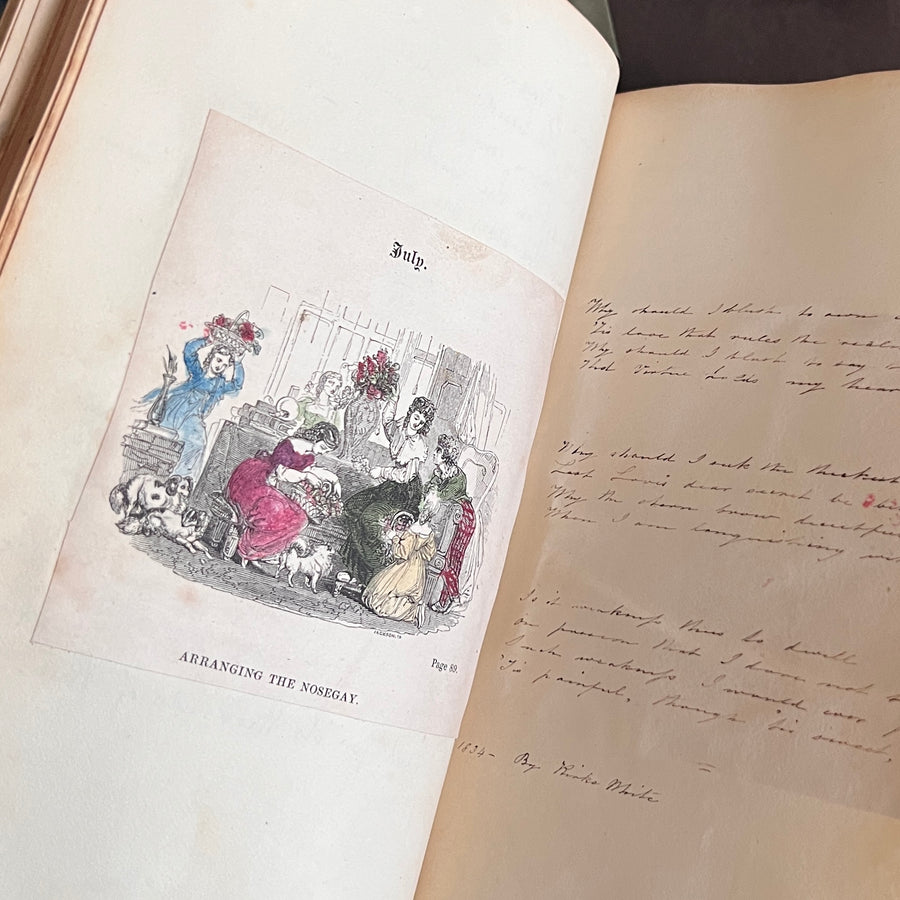 July.
JACKSON. SC
Page 89.
ARRANGING THE NOSEGAY.
Why should I blush to own
'Tis love that rules the
Why should I blush to say
That Virtue holds my hear
Why should I seek the thickest
Lest Love's dear secret be
Why the stern brow
When I am languishing
Is it weakness thus to dwell
on passion that I dare not
Such weakness I would ever
'Tis painful, though 'tis sweet,
1834 - By Kirke White